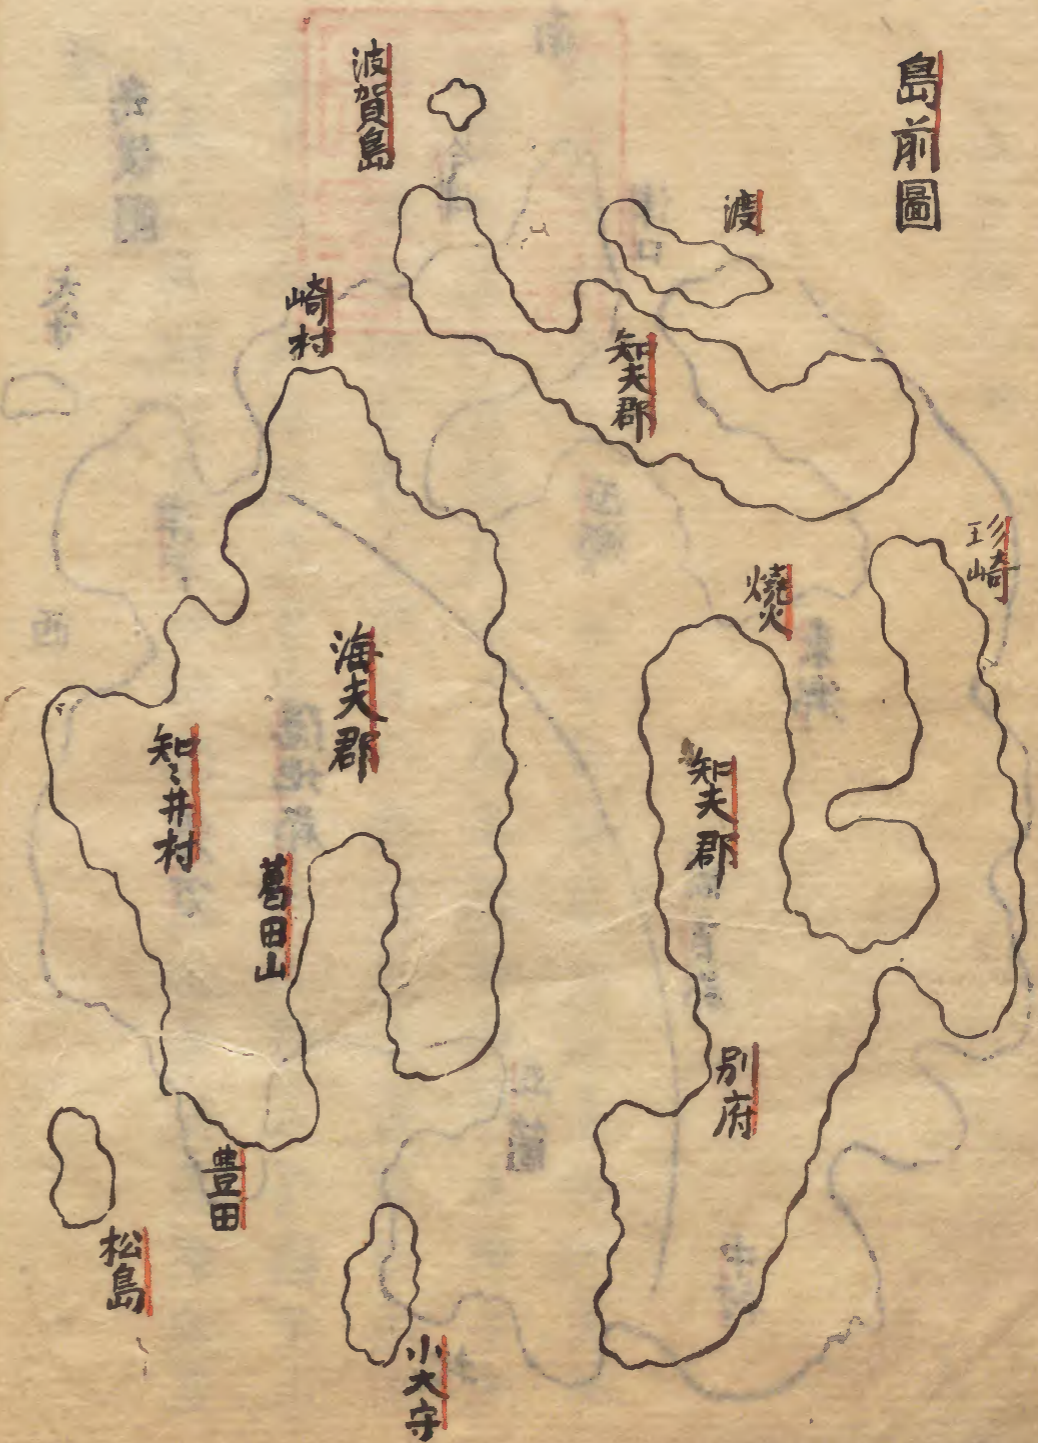 島前圖
渡
波賀島
知夫郡
崎村
珍崎
燒火
海夫郡
知夫郡
知々井村
葛田山
別府
豊田
松島
小大守